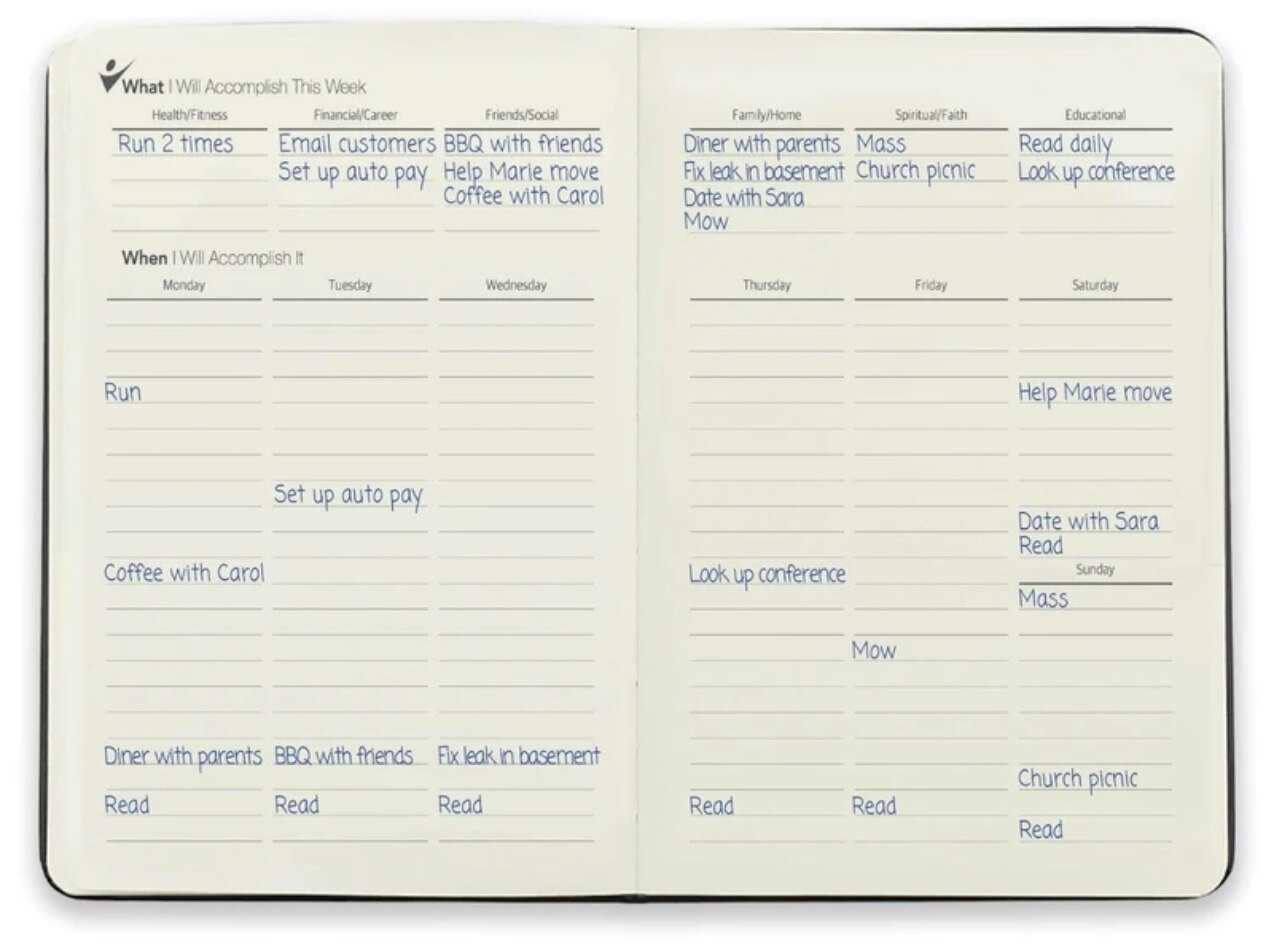 What I Will Accomplish This Week
Health/Fitness
Run 2 times
Financial/Career
Email customers
Set up auto pay
Friends/Social
BBQ with friends
Help Marie move
Coffee with Carol
Family/Home
Diner with parents
Fix leak in basement
Date with Sara
Mow
Spiritual/Faith
Mass
Church picnic
Educational
Read daily
Look up conference
When I Will Accomplish It
Monday
Run
Coffee with Carol
Diner with parents
Read
Tuesday
Set up auto pay
BBQ with friends
Read
Wednesday
Fix leak in basement
Read
Thursday
Look up conference
Read
Friday
Mow
Read
Saturday
Help Marie move
Date with Sara
Read
Sunday
Mass
Church picnic
Read